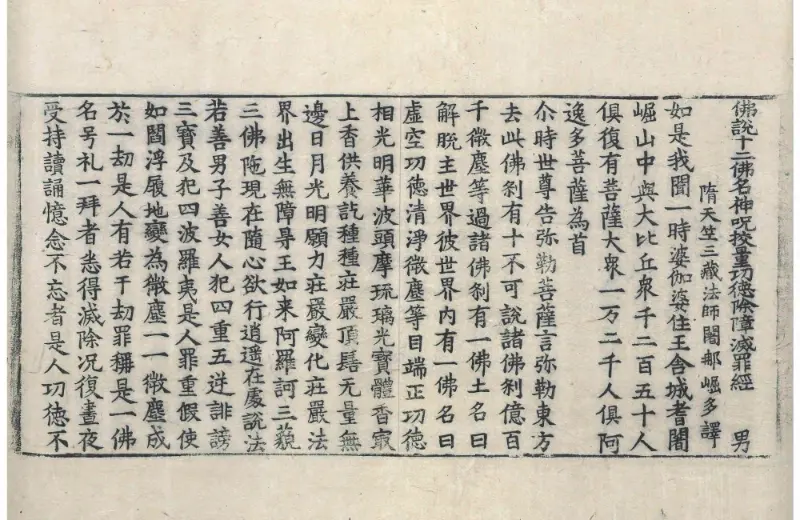 佛說十二佛名神呪挍量功德除障滅罪經 男
隋天竺三藏法師闍那崛多譯
如是我聞一時婆伽婆住王舍城耆闍
崛山中與大比丘衆千二百五十人
俱復有菩薩大衆一万二千人俱阿
逸多菩薩為首
尒時世尊告弥勒菩薩言弥勒東方
去此佛剎有十不可說諸佛剎億百
千微塵等過諸佛剎有一佛土名曰
解脫主世界彼世界內有一佛名曰
虛空功德清淨微塵等目端正功德
相光明華波頭摩琉璃光寶體香最
上香供養訖種種莊嚴頂髻无量無
邊日月光明願力莊嚴變化莊嚴法
界出生無障㝵王如来阿羅訶三藐
三佛陁現在隨心欲行逍遥在處說法
若善男子善女人犯四重五逆誹謗
三寶及犯四波羅夷是人罪重假使
如閻浮履地變為微塵一一微塵成
於一劫是人有若干劫罪稱是一佛
名号礼一拜者悉得滅除况復晝夜
受持讀誦憶念不忘者是人功德不